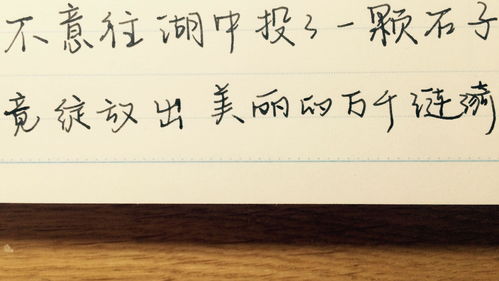 不意往湖中投了一颗石子
竟绽放出美丽的万千涟漪